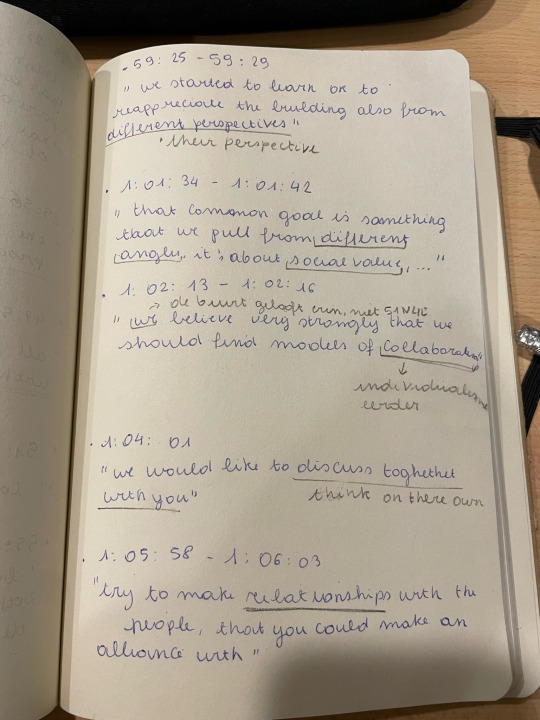 . 59: 25 - 59: 29
" we started to learn or to
reappreciate the building also from
different perspectives "
• their perspective
. 1: 01: 34 - 1: 01: 42
" that common goal is something
that we pull from different
angles, it's about social value, ... "
. 1: 02: 13 - 1: 02: 16
→ de buurt gelooft erin, niet
" we believe very strongly that we
should find models of collaboration"
↓
individualisme
eerder
. 1: 04: 01
"we would like to discuss toghether
with you"
think on there own
. 1: 05: 58 - 1: 06: 03
"try to make relationships with the
people, that you could make an
alliance with "